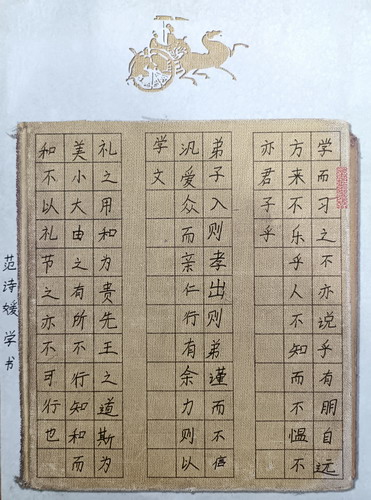 学而习之不亦说乎有朋自远
方来不乐乎人不知而不愠不
亦君子乎
弟子入则孝出则弟谨而不信
汎爱众而亲仁行有余力则以
学文
礼之用和为贵先王之道斯为
美小大由之有所不行知和而
和不以礼节之亦不可行也
范诗媛学书